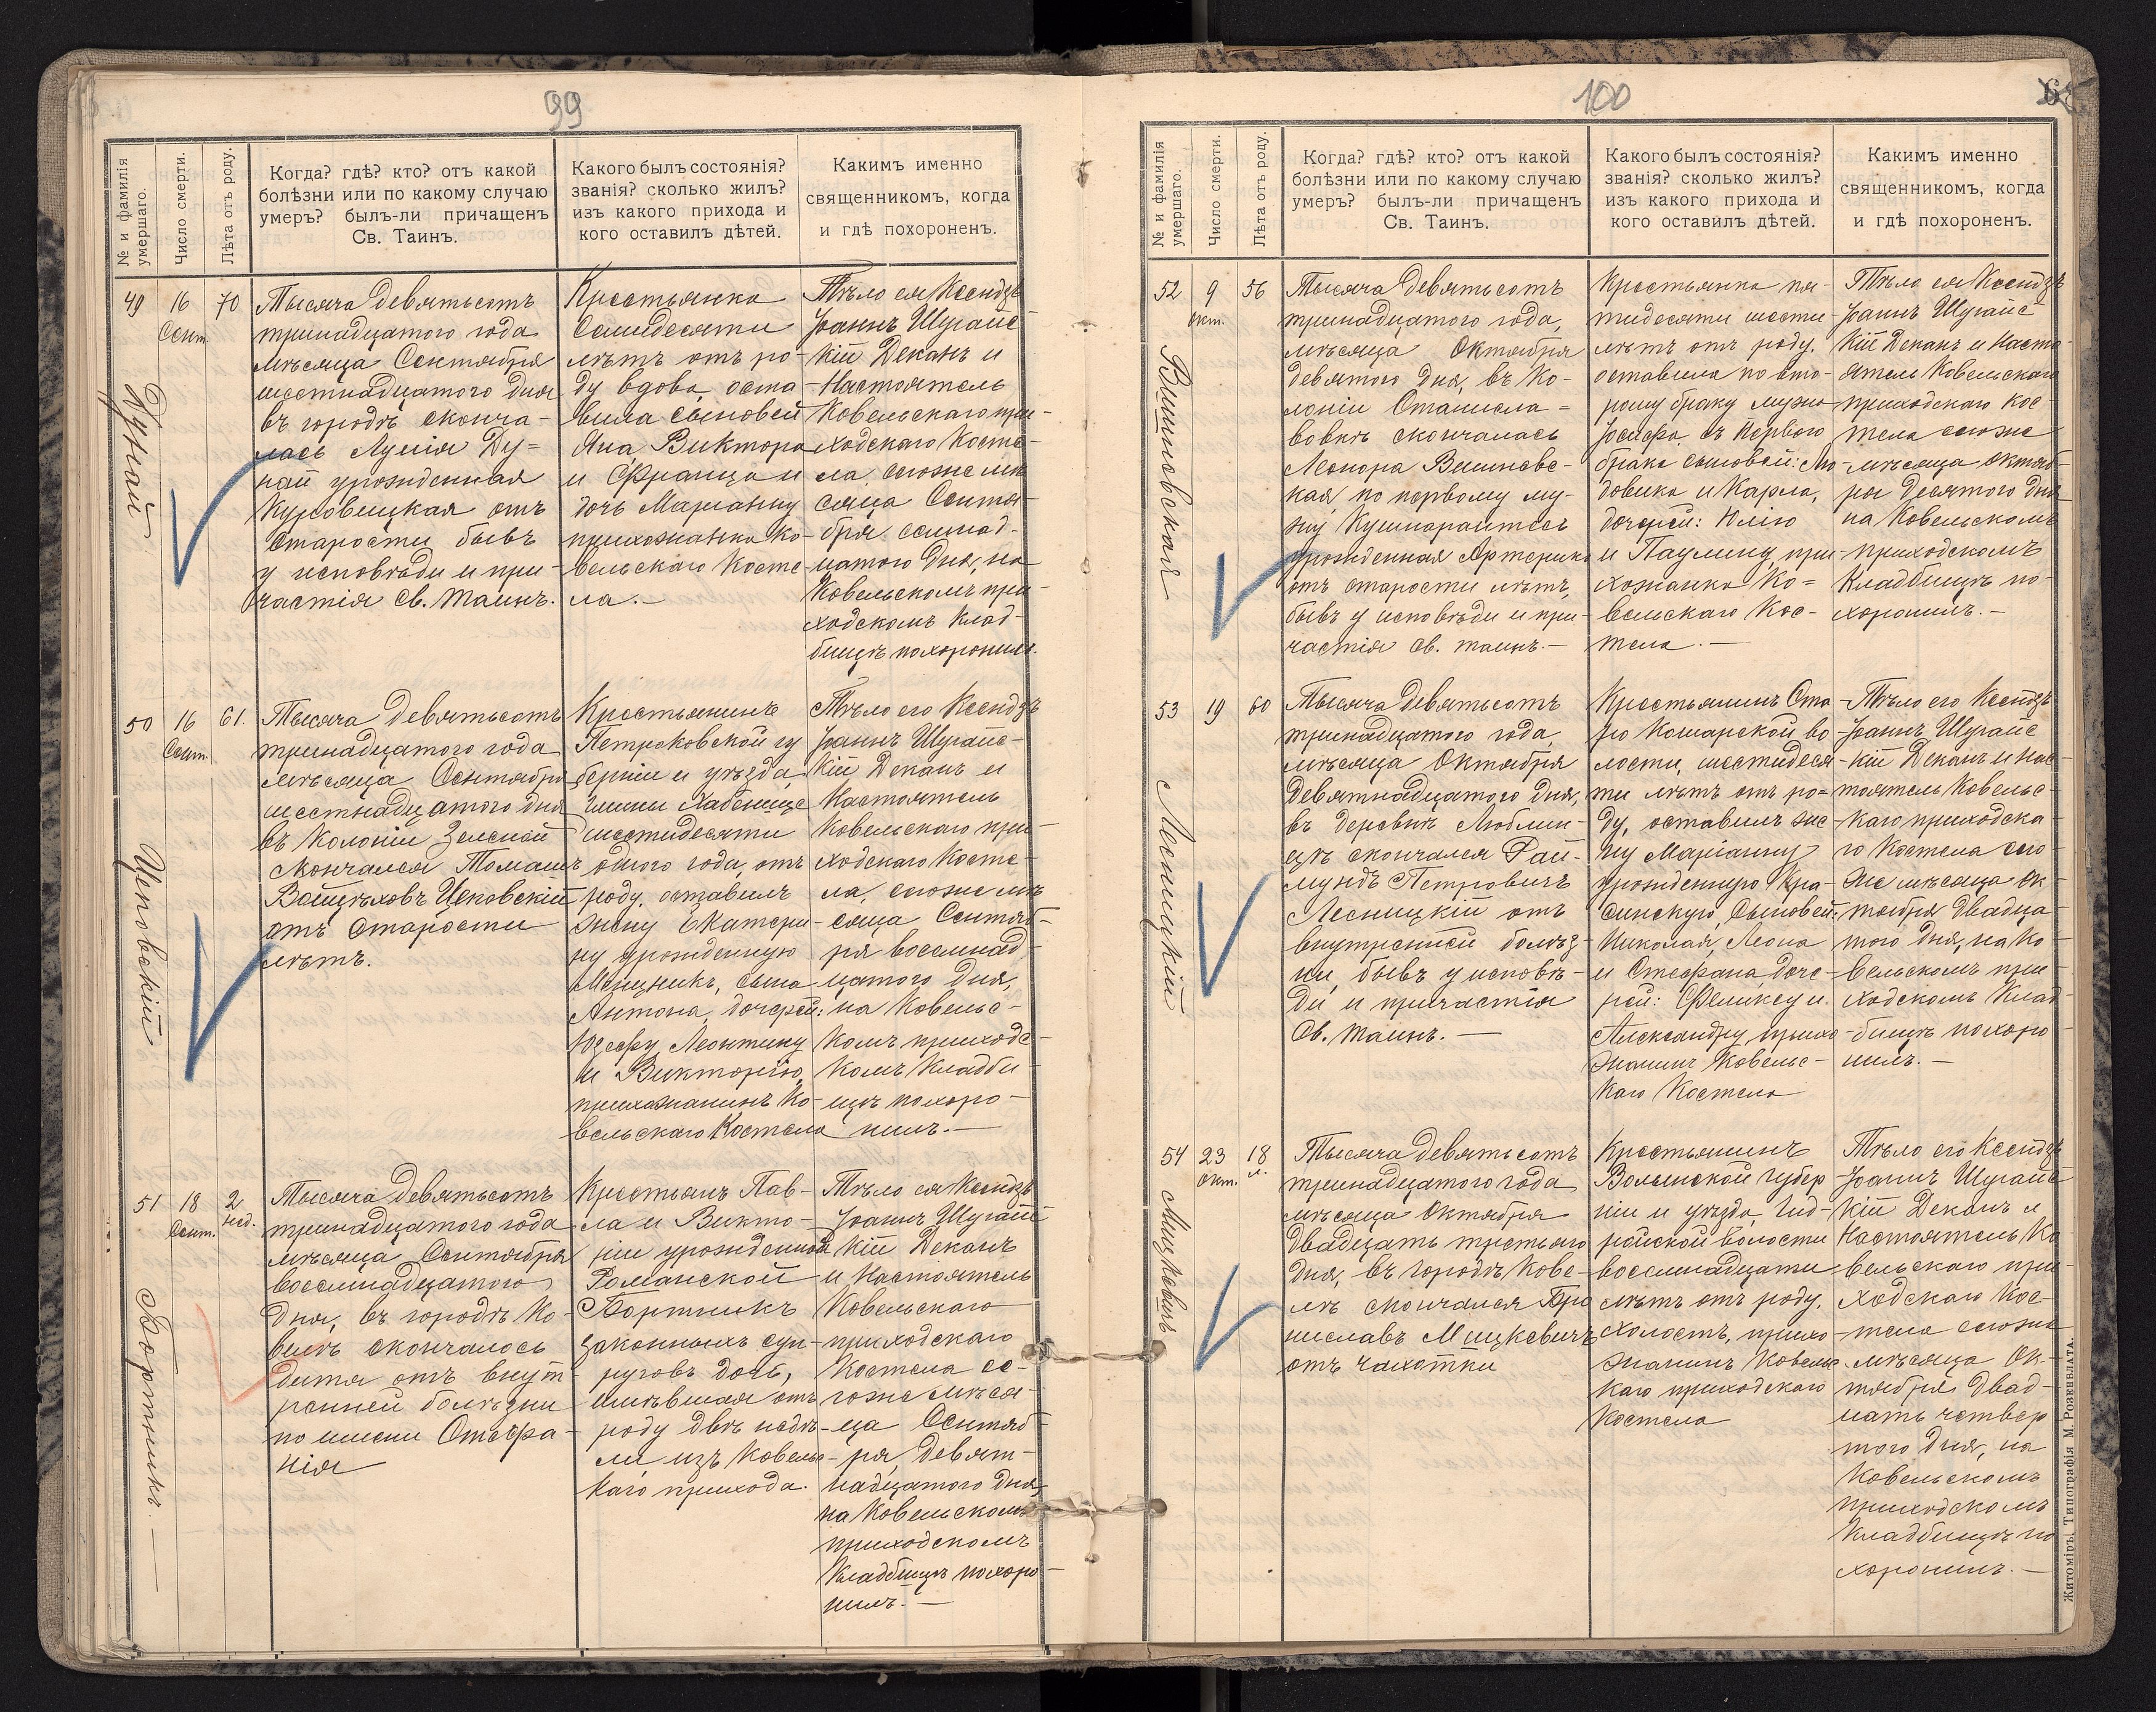 99
№ и фамилія умершаго.
Число смерти.
Лѣта отъ роду.
Когда? гдѣ? кто? отъ какой
болѣзни или по какому случаю
умеръ? былъ-ли причащенъ
Св. Таинъ.
Какого былъ состоянія?
званія? сколько жилъ?
изъ какого прихода и
кого оставилъ дѣтей.
Какимъ именно
священникомъ, когда
и гдѣ похороненъ.
49
Дунай
16
Сент.
70
Тысяча девятьсотъ
тринадцатого года
мѣсяца Сентября
шестнадцатого дня
въ городѣ сконча-
лась Луція Ду-
най урожденная
отъ
старости бывъ
у исповѣди и при-
частія Св. Таинъ.
Крестьянка
Семидесяти
лѣтъ отъ ро-
ду вдова, оста-
вила сыновей
Яна, Виктора
и Франца и
дочь Маріанну
прихожанка Ко-
вельскаго Косте-
ла.-
Тѣло ея Ксендзъ
Іоаннъ Шугайс-
кій Деканъ и
Настоятель
Ковельскаго при-
ходскаго Косте-
ла, сегоже мѣ-
сяца Сентя-
бря семнад-
цатого дня, на
Ковельскомъ при-
ходскомъ клад-
бищѣ похоронилъ.
50
Цеповскій
16
Сент.
61.
Тысяча девятьсотъ
тринадцатого года
мѣсяца Сентября
шестнадцатого дня
въ Колоніи Зеленой
скончался Томашъ
Войцѣховъ Цеповскій
отъ старости
лѣтъ.
Крестьянинъ
Петроковской гу
берніи и уѣзда,
гмины
шестидесяти
одного года, отъ
роду, оставилъ
жену Екатери-
ну урожденную
сына
Антона, дочерей:
Юзефу, Леонтину
и Викторію,
прихожанинъ Ко-
вельскаго Костела
Тѣло его Ксендзъ
Іоаннъ Шугайс-
кій Деканъ и
Настоятель
Ковельскаго при-
ходскаго Косте-
ла, сегоже мѣ-
сяца Сентяб-
ря восемнад-
цатого дня,
на Ковельс-
комъ приходс-
комъ кладби-
щѣ похоро-
нилъ.-
51
Бортникъ.-
18
Сент.
2
нед.
Тысяча девятьсотъ
тринадцатого года
мѣсяца Сентября
восемнадцатого
дня, въ городѣ Ко-
велѣ скончалось
дитя отъ внут-
ренней болѣзни
по имени Стефа-
нія
Крестьянъ Пав-
ла и Викто-
ріи урожденной
Романской
Бортникъ
законныхъ суп-
руговъ дочь,
имѣвшая отъ
роду двѣ недѣ-
ли, изъ Ковельс-
каго прихода.
Тѣло ея Ксендзъ
Іоаннъ Шугайс
кій Деканъ
и Настоятель
Ковельскаго
приходскаго
Костела се-
гоже мѣся-
ца Сентяб-
ря, девят-
надцатого дня,
на Ковельскомъ
приходскомъ
кладбищѣ похоро-
нилъ.-
100
№ и фамилія умершаго.
Число смерти.
Лѣта отъ роду.
Когда? гдѣ? кто? отъ какой
болѣзни или по какому случаю
умеръ? былъ-ли причащенъ
Св. Таинъ.
Какого былъ состоянія?
званія? сколько жилъ?
изъ какого прихода и
кого оставилъ дѣтей.
Какимъ именно
священникомъ, когда
и гдѣ похороненъ.
52
Вишновская
9
Окт.
56
Тысяча девятьсотъ
тринадцатого года,
мѣсяца Октября
девятого дня, въ Ко-
лоніи Станисла=
вовкѣ скончалась
Леонора Вишновс-
кая, по первому му-
жу
урожденная
отъ старости лѣтъ,
бывъ у исповѣди и при-
частія св. таинъ.-
Крестьянка пя-
тидесяти шести
лѣтъ отъ роду.
оставила по вто-
рому браку мужа
Іосифа, съ перваго
брака сыновей: Лю-
довика и Карла,
дочерей: Юлію
и Паулину, при-
хожанка Ко=
вельскаго Кос-
тела.-
Тѣло ея Ксендзъ
Іоаннъ Шугайс
кій Деканъ и Насто-
ятель Ковельскаго
приходскаго Кос-
тела сегоже
мѣсяца Октяб-
ря десятого дня
на Ковельскомъ
приходскомъ
кладбищѣ по-
хоронилъ.-
53
Лесницкій
19
60
Тысяча девятьсотъ
тринадцатого года,
мѣсяца Октября
девятнадцатого дня,
въ деревнѣ Люблин-
цѣ скончался Рай-
мундъ Петровичъ
Лесницкій отъ
внутренней болѣз-
ни, бывъ у исповѣ-
ди и причастія
Св. таинъ.-
Крестьянинъ Ста
ро Кошарской во-
лости, шестидеся-
ти лѣтъ отъ ро=
ду, оставилъ же-
ну Маріанну
урожденную Кра-
синскую, сыновей:
Николая, Леона
и Стефана, доче-
рей: Феликсу и
Александру, прихо-
жанинъ Ковельс-
каго Костела
Тѣло его Ксендзъ
Іоаннъ Шугайс
кій Деканъ и Нас-
тоятель Ковельс-
каго приходска-
го Костела сего
же мѣсяца Ок-
тября двадца-
того дня, на Ко-
вельскомъ при-
ходскомъ клад-
бищѣ похоро-
нилъ.-
54
Мицкевичъ
23
Окт.
18
л.
Тысяча девятьсотъ
тринадцатого года
мѣсяца Октября
двадцать третьяго
дня, въ городѣ Кове-
лѣ скончался Бро
ниславъ Мицкевичъ
отъ чахотки
Крестьянинъ
Волынской губер
ніи и уѣзда,
волости
восемнадцати
лѣтъ отъ роду.
холостъ, прихо-
жанинъ Ковельс-
каго приходскаго
Костела
Тѣло его Ксендзъ
Іоаннъ Шугайс
кій Деканъ и
Настоятель Ко
вельскаго при-
ходскаго Кос-
тела сегоже
мѣсяца Ок-
тября двад-
цать четвер
того дня, на
Ковельскомъ
приходскомъ
кладбищѣ по
хоронилъ.-
Житоміръ, Типографія М. Розенблата.